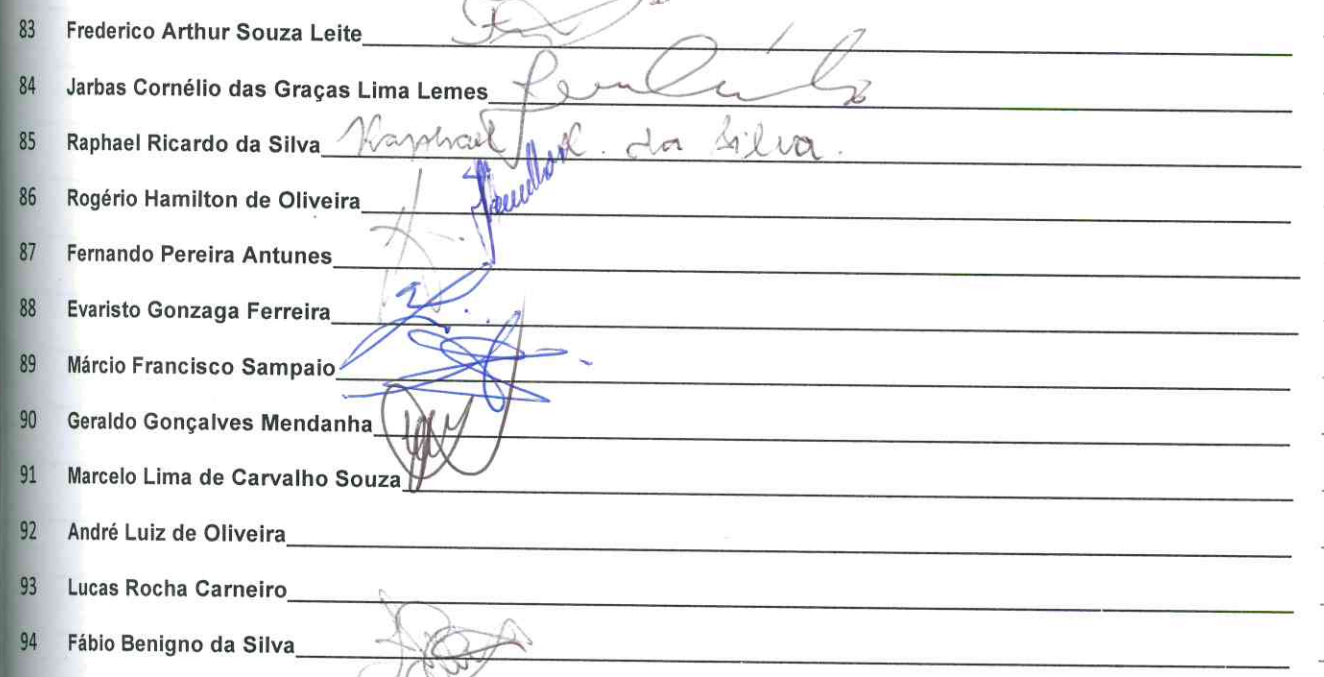 83 Frederico Arthur Souza Leite
84 Jarbas Cornélio das Graças Lima Lemes
85 Raphael Ricardo da Silva Raphael R. da Silva.
86 Rogério Hamilton de Oliveira
87 Fernando Pereira Antunes
88 Evaristo Gonzaga Ferreira
89 Márcio Francisco Sampaio
90 Geraldo Gonçalves Mendanha
91 Marcelo Lima de Carvalho Souza
92 André Luiz de Oliveira
93 Lucas Rocha Carneiro
94 Fábio Benigno da Silva